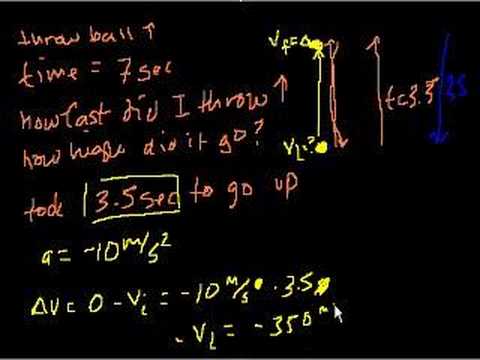 throw ball ↑
time = 7 sec
how fast did I throw ↑
how high did it go?
took 3.5 sec to go up
a = -10 m/s²
ΔV = 0 - Vi = -10 m/s · 3.5
- Vi = -350 m
Vf = 0
Vi = ?
t = 3.5
3.5